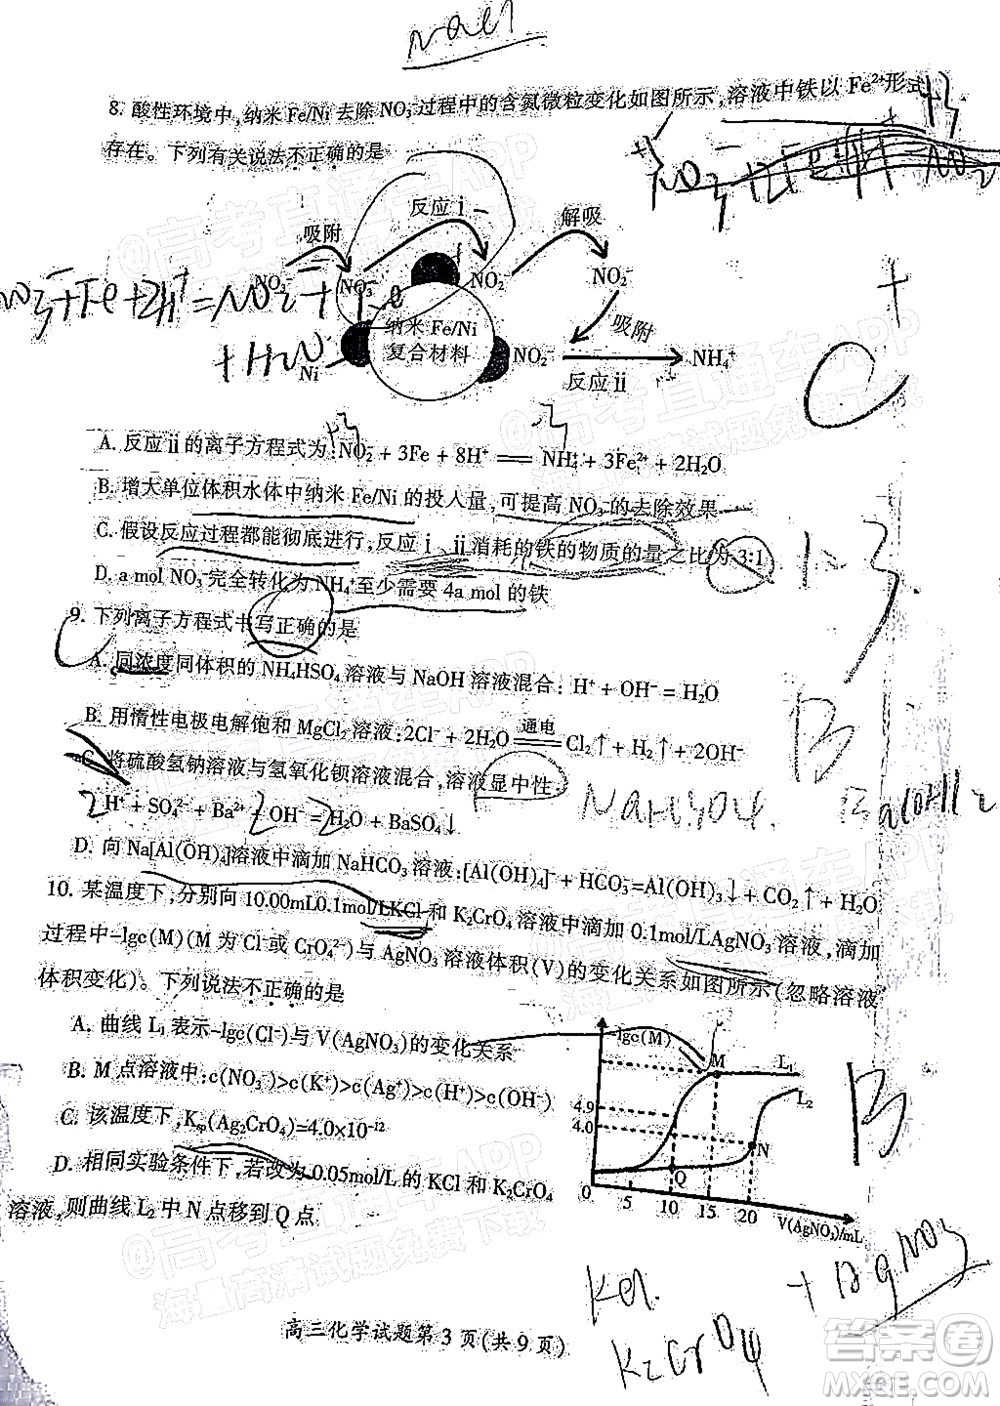 NaCl
8. 酸性环境中,纳米 Fe/Ni 去除 NO₃⁻过程中的含氮微粒变化如图所示,溶液中铁以 Fe²⁺形式
存在。下列有关说法不正确的是
吸附 反应 i 解吸
NO₃⁻ NO₃⁻ NO₂⁻ NO₂⁻
纳米 Fe/Ni
复合材料
吸附
Ni NO₂⁻ NH₄⁺
反应 ii
C
A. 反应 ii 的离子方程式为:NO₂⁻ + 3Fe + 8H⁺ == NH₄⁺ + 3Fe²⁺ + 2H₂O
B. 增大单位体积水体中纳米 Fe/Ni 的投入量,可提高 NO₃⁻的去除效果
C. 假设反应过程都能彻底进行,反应 i、ii 消耗的铁的物质的量之比为 3:1
1:3
D. a mol NO₃⁻完全转化为 NH₄⁺至少需要 4a mol 的铁
9. 下列离子方程式书写正确的是
A. 同浓度同体积的 NH₄HSO₄ 溶液与 NaOH 溶液混合: H⁺ + OH⁻ = H₂O
B. 用惰性电极电解饱和 MgCl₂ 溶液:2Cl⁻ + 2H₂O 通电 Cl₂↑ + H₂↑ + 2OH⁻
C. 将硫酸氢钠溶液与氢氧化钡溶液混合,溶液显中性:
H⁺ + SO₄²⁻ + Ba²⁺ + OH⁻ = H₂O + BaSO₄↓
D. 向 Na[Al(OH)₄]溶液中滴加 NaHCO₃ 溶液:[Al(OH)₄]⁻ + HCO₃⁻=Al(OH)₃↓ + CO₂↑ + H₂O
B
10. 某温度下,分别向 10.00mL0.1mol/LKCl 和 K₂CrO₄ 溶液中滴加 0.1mol/LAgNO₃ 溶液,滴加
过程中-lgc(M)(M 为 Cl⁻或 CrO₄²⁻)与 AgNO₃ 溶液体积(V)的变化关系如图所示(忽略溶液
体积变化)。下列说法不正确的是
A. 曲线 L₁ 表示-lgc(Cl⁻)与 V(AgNO₃)的变化关系
B. M 点溶液中:c(NO₃⁻)>c(K⁺)>c(Ag⁺)>c(H⁺)>c(OH⁻)
C. 该温度下,Ksp(Ag₂CrO₄)=4.0×10⁻¹²
D. 相同实验条件下,若改为 0.05mol/L 的 KCl 和 K₂CrO₄
溶液,则曲线 L₂ 中 N 点移到 Q 点
-lgc(M)
M L₁
L₂
4.9
4.0
N
Q
0 5 10 15 20 V(AgNO₃)/mL
B
KCl
K₂CrO₄
+AgNO₃
高三化学试题第 3 页(共 9 页)
答案圈
MXQE.COM
@高考直通车APP
海量高清试题免费下载